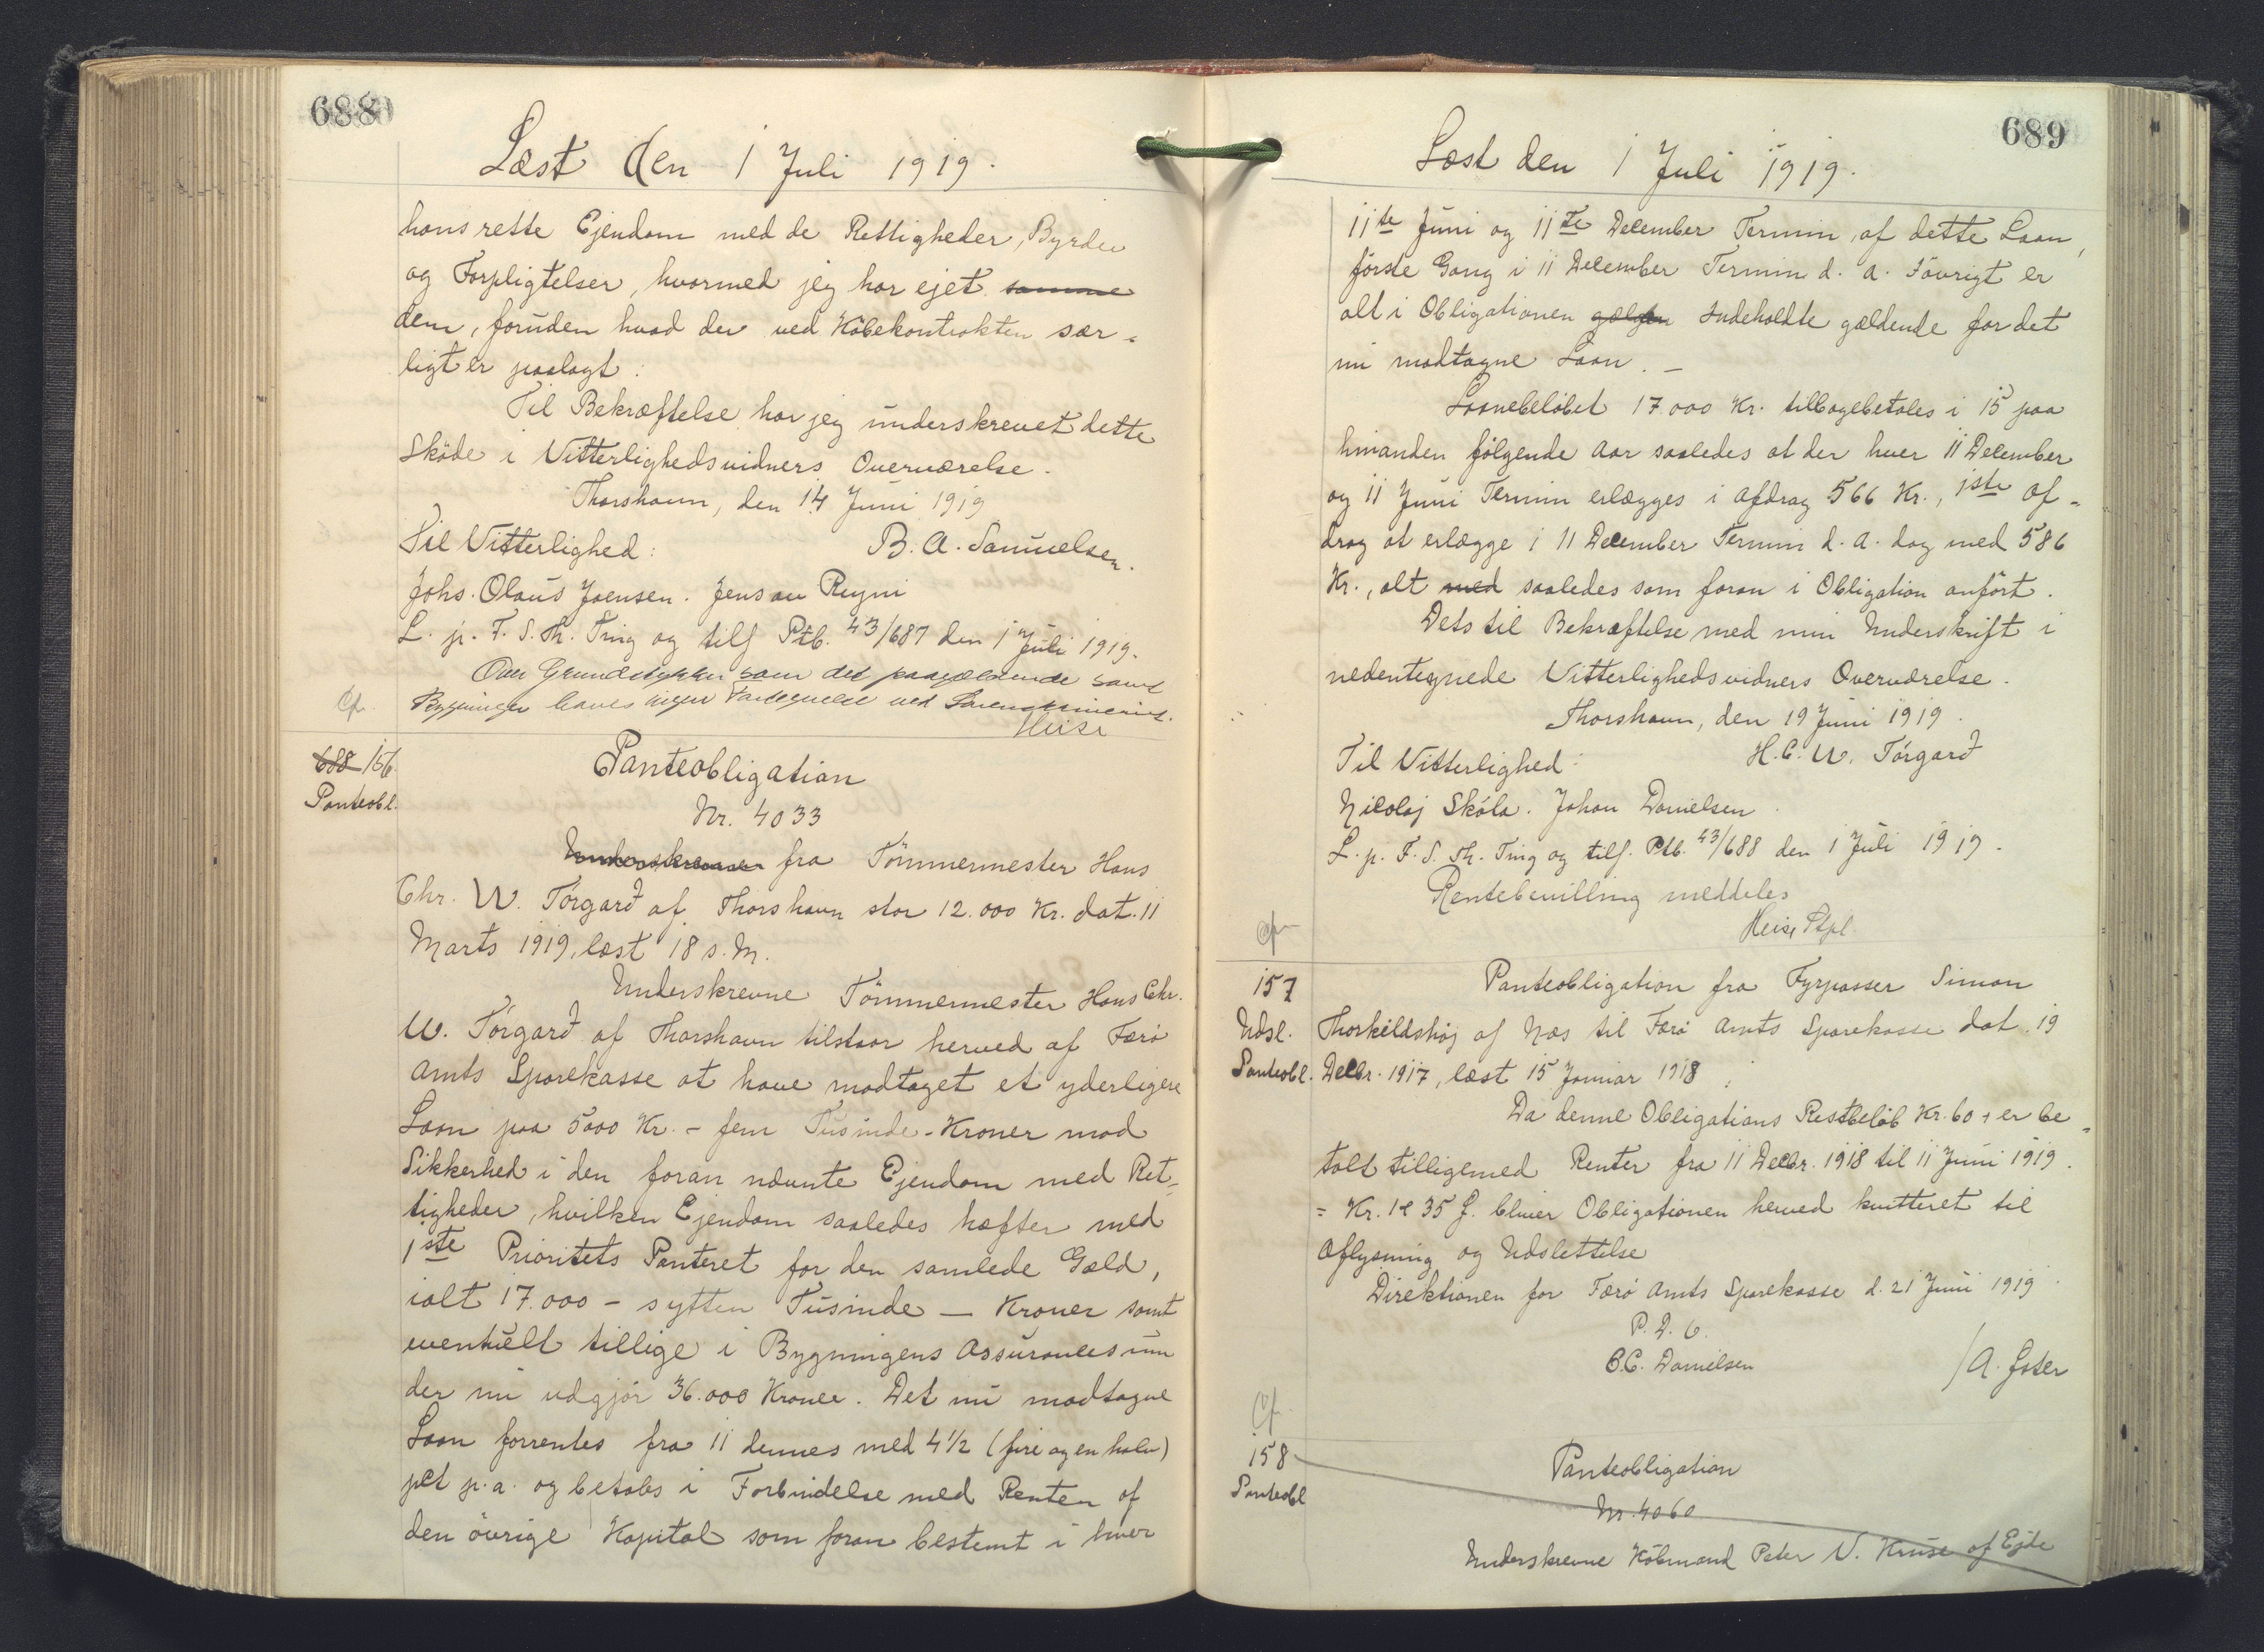 688
Læst den 1 Juli 1919.
hans rette Ejendom med de Rettigheder, Byrder
og Forpligtelser, hvormed jeg har ejet samme
dem, foruden hvad der ved Köbekontrakten sær-
ligt er paalagt.
Til Bekræftelse har jeg underskrevet dette
Sköde i Vitterlighedsvidners Overværelse.
Thorshavn, den 14 Juni 1919
Til Vitterlighed: B. A. Samuelsen.
Johs. Olaus Joensen. Jens av Reyni
L. p. F. S. Th. Ting og tilf Ptb. 43/687 den 1 Juli 1919.
Over Grundstykker som det paagældende samt
Bygninger haves ingen
Heise
Cf.
688 156
Panteobl.
Panteobligation
Nr. 4033
Underskrevne fra Tömmermester Hans
Chr. W. Tórgarð af Thorshavn stor 12.000 Kr. dat. 11
Marts 1919, læst 18 s. M.
Underskrevne Tömmermester Hans Chr.
W. Tórgarð af Thorshavn tilstaar herved af Færö
Amts Sparekasse at have modtaget et yderligere
Laan paa 5000 Kr. - fem Tusinde - Kroner mod
Sikkerhed i den foran nævnte Ejendom med Ret-
tigheder, hvilken Ejendom saaledes hæfter med
1ste Prioritets Panteret for den samlede Gæld,
ialt 17.000 - sytten Tusinde - Kroner samt
eventuelt tillige i Bygningens Assurancesum
der nu udgjör 36.000 Kroner. Det nu modtagne
Laan forrentes fra 11 dennes med 4 1/2 (fire og en halv)
pct p.a. og betales i Forbindelse med Renten af
den övrige Kapital som foran bestemt i hver
689
Læst den 1 Juli 1919.
11te Juni og 11te December Termin af dette Laan,
förste Gang i 11 December Termin d. a. Iövrigt er
alt i Obligationen gælden Indeholdte gældende for det
nu modtagne Laan. -
Laanebelöbet 17.000 Kr. tilbagebetales i 15 paa
hinanden fölgende Aar saaledes at der hver 11 December
og 11 Juni Termin erlægges i Afdrag 566 Kr., 1ste Af-
drag at erlægge i 11 December Termin d. a. dog med 586
Kr., alt med saaledes som foran i Obligation anfört.
Dets til Bekræftelse med min Underskrift i
nedentegnede Vitterlighedsvidners Overværelse.
Thorshavn, den 19 Juni 1919.
Til Vitterlighed: H. C. W. Tórgarð
Nicolaj Skála. Johan Danielsen.
L. p. F. S. Th. Ting og tilf. Ptb. 43/688 den 1 Juli 1919.
Rentebevilling meddeles
Heise Ptpl.
Cf.
157
Udsl.
Panteobl.
Panteobligation fra Fyrpasser Simon
Thorkildshöj af Næs til Færö Amts Sparekasse dat. 19
Decbr. 1917, læst 15 Januar 1918.
Da denne Obligations Restbelöb Kr. 60 + er be-
talt tilligemed Renter fra 11 Decbr. 1918 til 11 Juni 1919.
= Kr. 1 35 bliver Obligationen herved kvitteret til
Aflysning og Udslettelse
Direktionen for Færö Amts Sparekasse d. 21 Juni 1919.
P. D. V.
C. C. Danielsen / A.
Cf.
158
Panteobl
Panteobligation
Nr. 4060
Underskrevne Köbmand Peter N. Kruse af Ejde